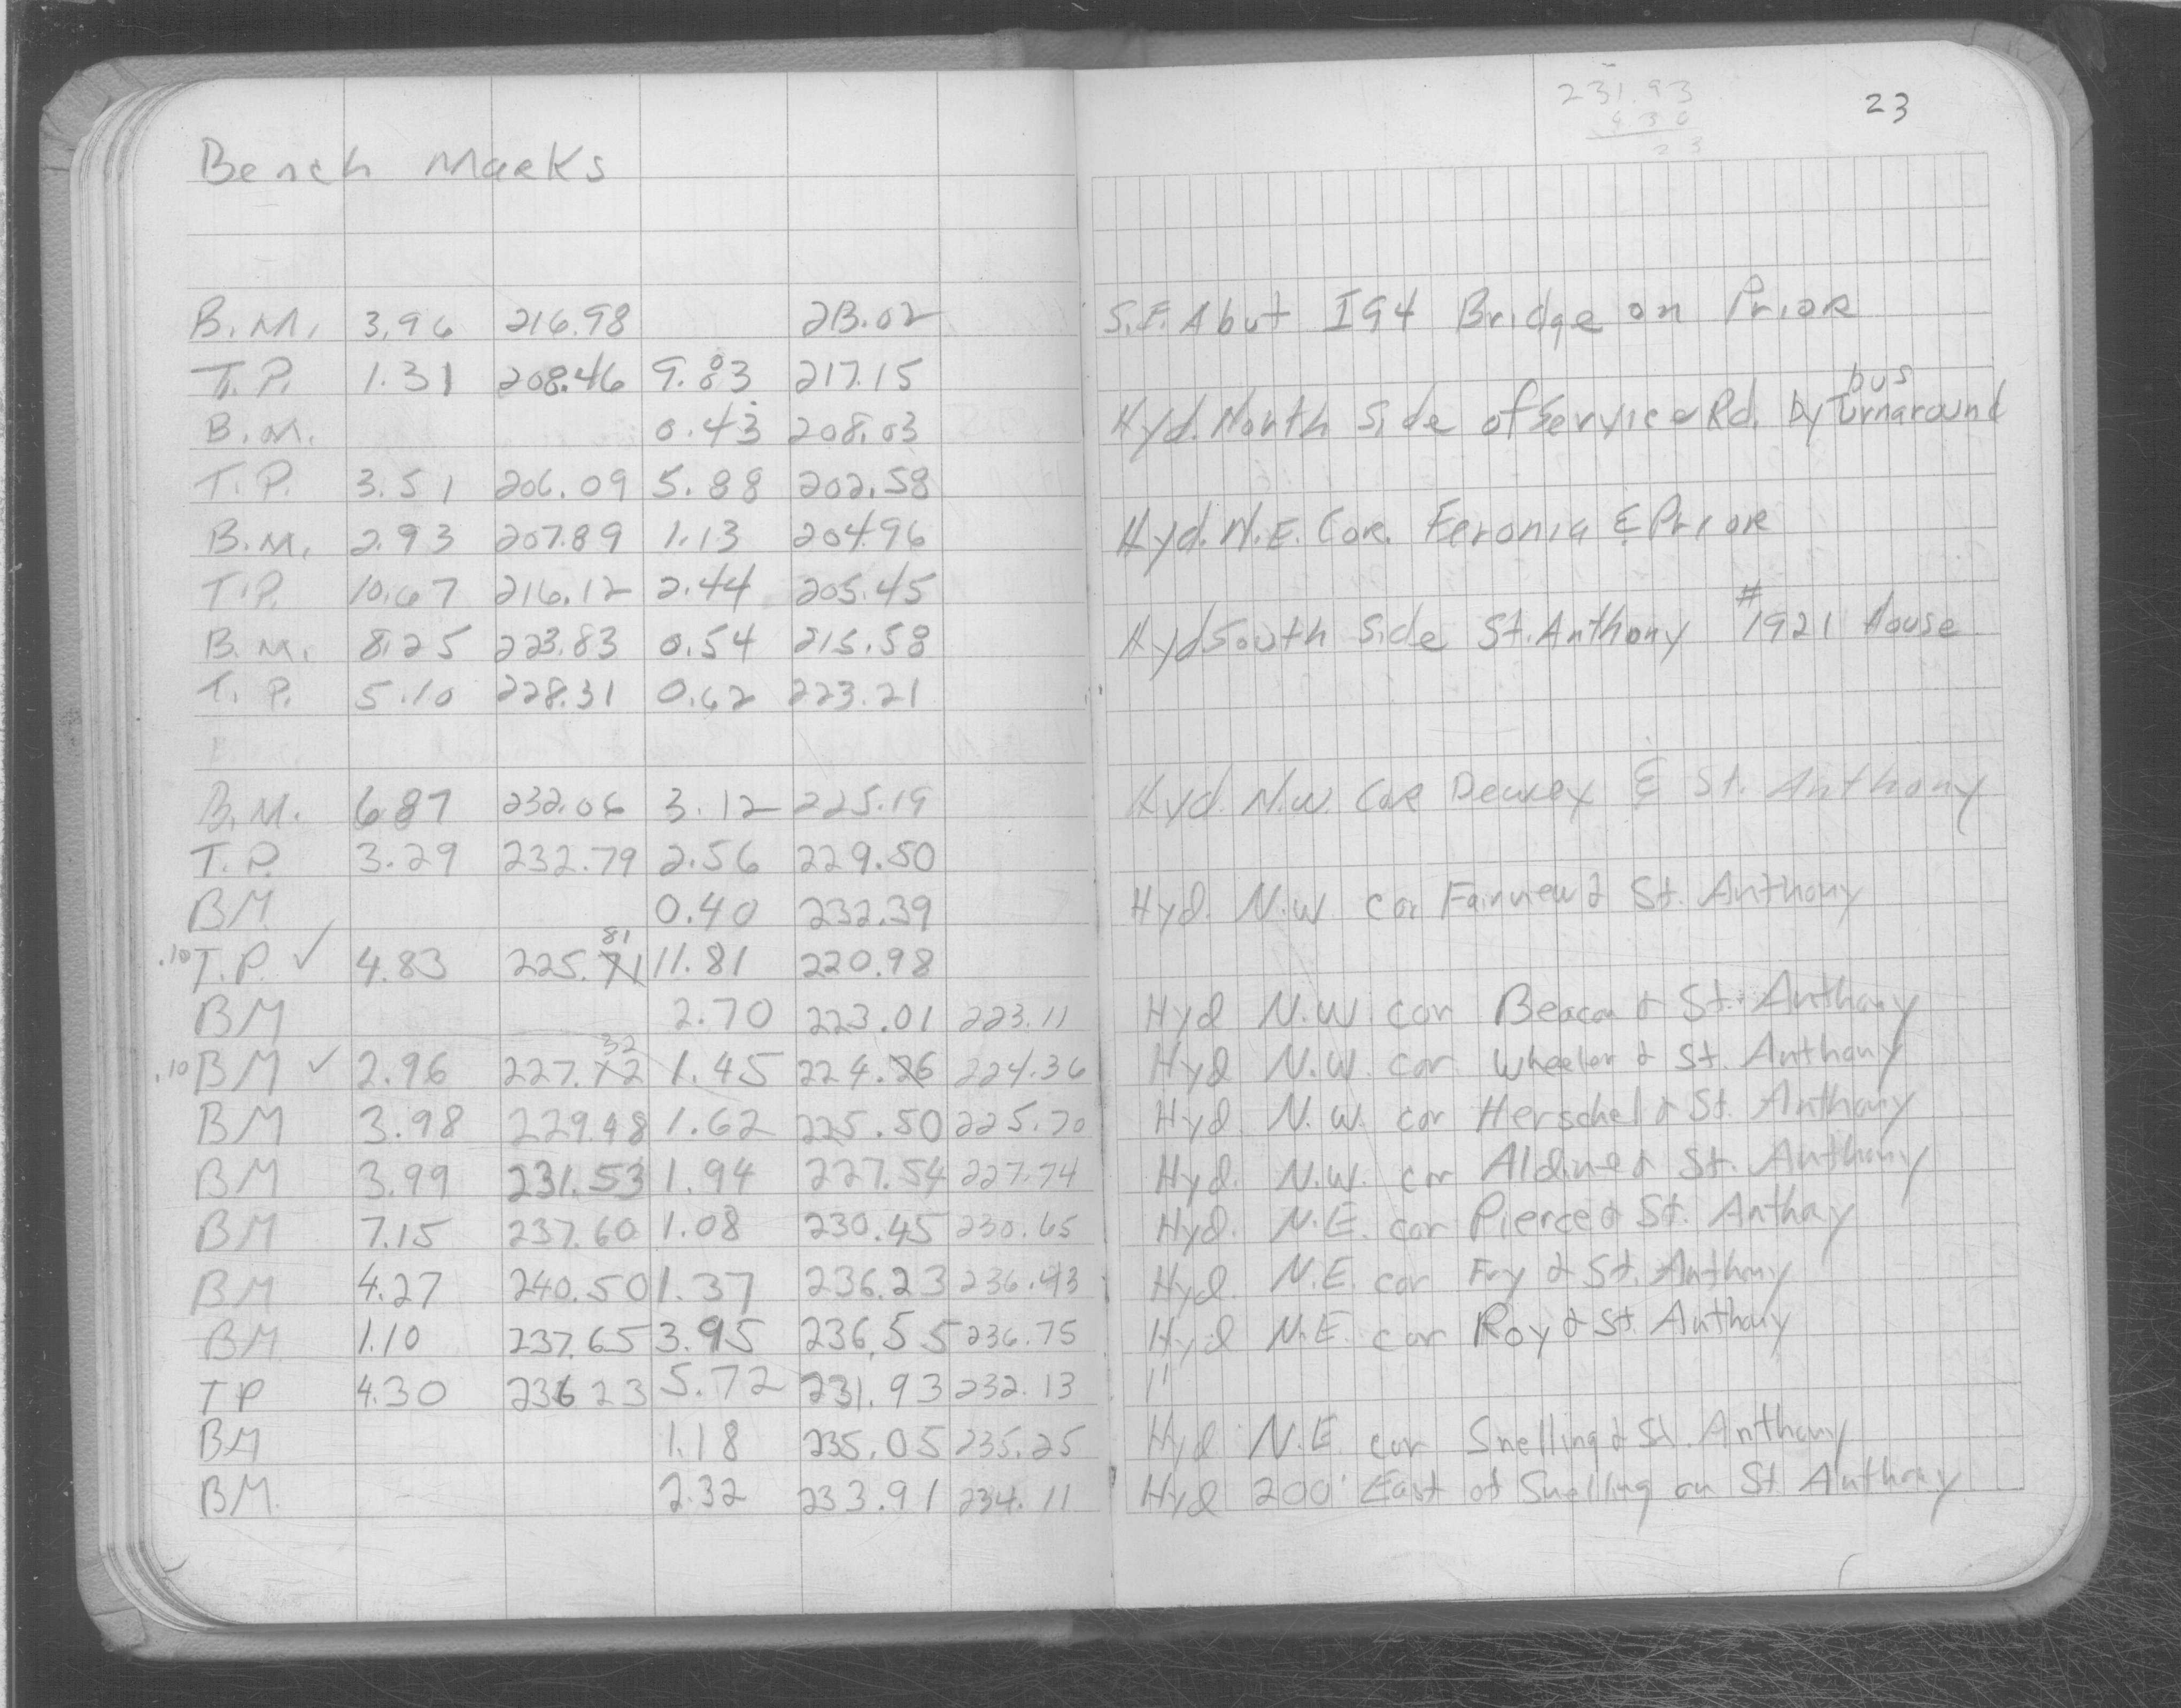 231.93
4.30
23
23
Bench Marks
B.M. 3.96 216.98 213.02 S.E. Abut I94 Bridge on Prior
T.P. 1.31 208.46 9.83 217.15
bus
B.M. 0.43 208.03 Hyd. North Side of Service Rd. by Turnaround
T.P. 3.51 206.09 5.88 202.58
B.M. 2.93 207.89 1.13 204.96 Hyd. N.E. Cor. Feronia & Prior
T.P. 10.67 216.12 2.44 205.45
B.M. 8.25 223.83 0.54 215.58 Hyd South Side St. Anthony #1921 House
T.P. 5.10 228.31 0.62 223.21
B.M. 6.87 232.06 3.12 225.19 Hyd. N.W. Cor Dewey & St. Anthony
T.P. 3.29 232.79 2.56 229.50
BM 0.40 232.39 Hyd. N.W. cor Fairview & St. Anthony
81
.10 T.P. ✓ 4.83 225.71 11.81 220.98
BM 2.70 223.01 223.11 Hyd N.W. cor Beacon & St. Anthony
32
.10 BM ✓ 2.96 227.12 1.45 224.26 224.36 Hyd N.W. cor Wheeler & St. Anthony
BM 3.98 229.48 1.62 225.50 225.70 Hyd. N.W. cor Herschel & St. Anthony
BM 3.99 231.53 1.94 227.54 227.74 Hyd. N.W. cor Aldine & St. Anthony
BM 7.15 237.60 1.08 230.45 230.65 Hyd. N.E. cor Pierce & St. Anthony
BM 4.27 240.50 1.37 236.23 236.43 Hyd. N.E. cor Fry & St. Anthony
BM 1.10 237.65 3.95 236.55 236.75 Hyd N.E. cor Roy & St. Anthony
TP 4.30 236.23 5.72 231.93 232.13 "
BM 1.18 235.05 235.25 Hyd N.E. cor Snelling & St. Anthony
BM. 2.32 233.91 234.11 Hyd 200' East of Snelling on St. Anthony